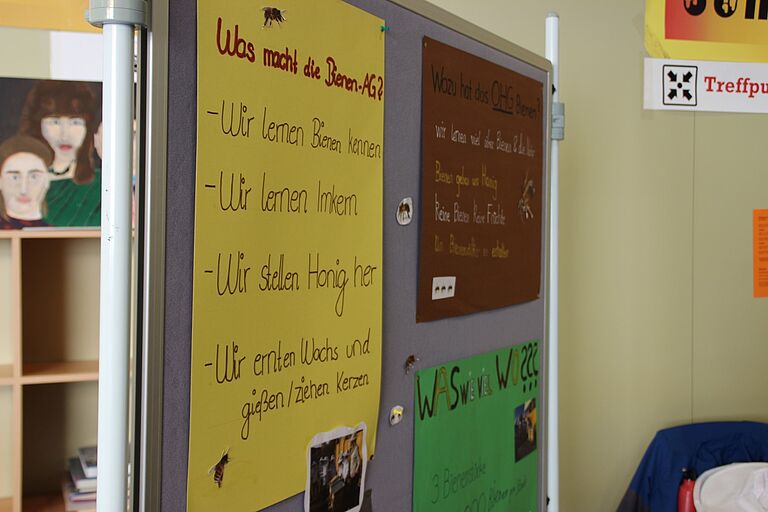 Was macht die Bienen-AG?
-Wir lernen Bienen kennen
-Wir lernen Imkern
-Wir stellen Honig her
-Wir ernten Wachs und
gießen/ziehen Kerzen
Wozu hat das OHG Bienen?
wir lernen viel über Bienen & die
Bienen geben uns Honig
Keine Bienen Keine Früchte
erhalten
WAS WIE VIEL WO???
3 Bienenstöcke
Treffpu